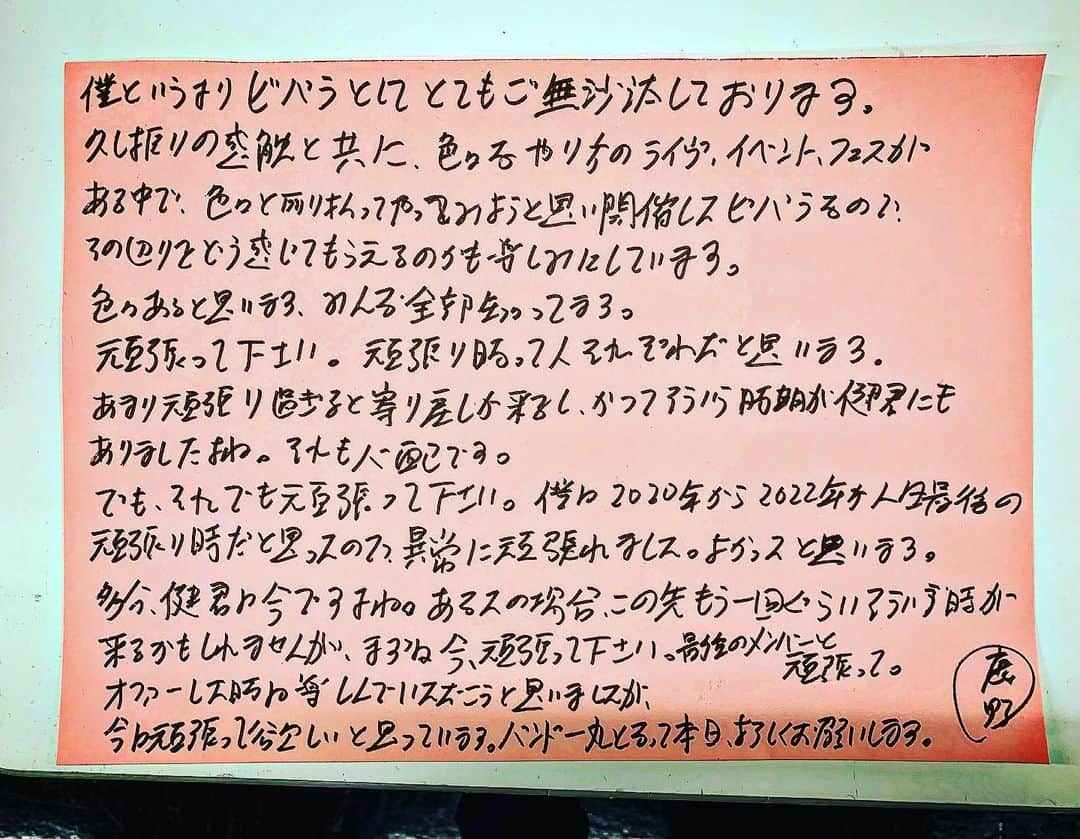 僕というより ビバラとして とてもご無沙汰しております。
久し振りの感触と共に、色々なやり方のライヴ、イベント、フェスが
ある中で、色々と取り払ってやってみようと思い開催したビバラなので、
その辺りをどう感じてもらえるのかも楽しみにしています。
色々あると思います、みんな全部知ってます。
頑張って下さい。頑張り時って人それぞれだと思います。
あまり頑張り過ぎると寄り戻しが来るし、かつてそういう時期が健君にも
ありましたよね。それも心配です。
でも、それでも頑張って下さい。僕は2020年から2022年が人生最後の
頑張り時だと思ったので、異常に頑張れました。よかったと思います。
多分、健君は今ですよね。あなたの場合、この先もう一回ぐらいそういう時が
来るかもしれませんが、まずは今、頑張って下さい。最強のメンバーと
頑張って。
オファーした時は楽しんでいただこうと思いましたが、
今は頑張って欲しいと思っています。バンド一丸となって本日、よろしくお願いします。
鹿野